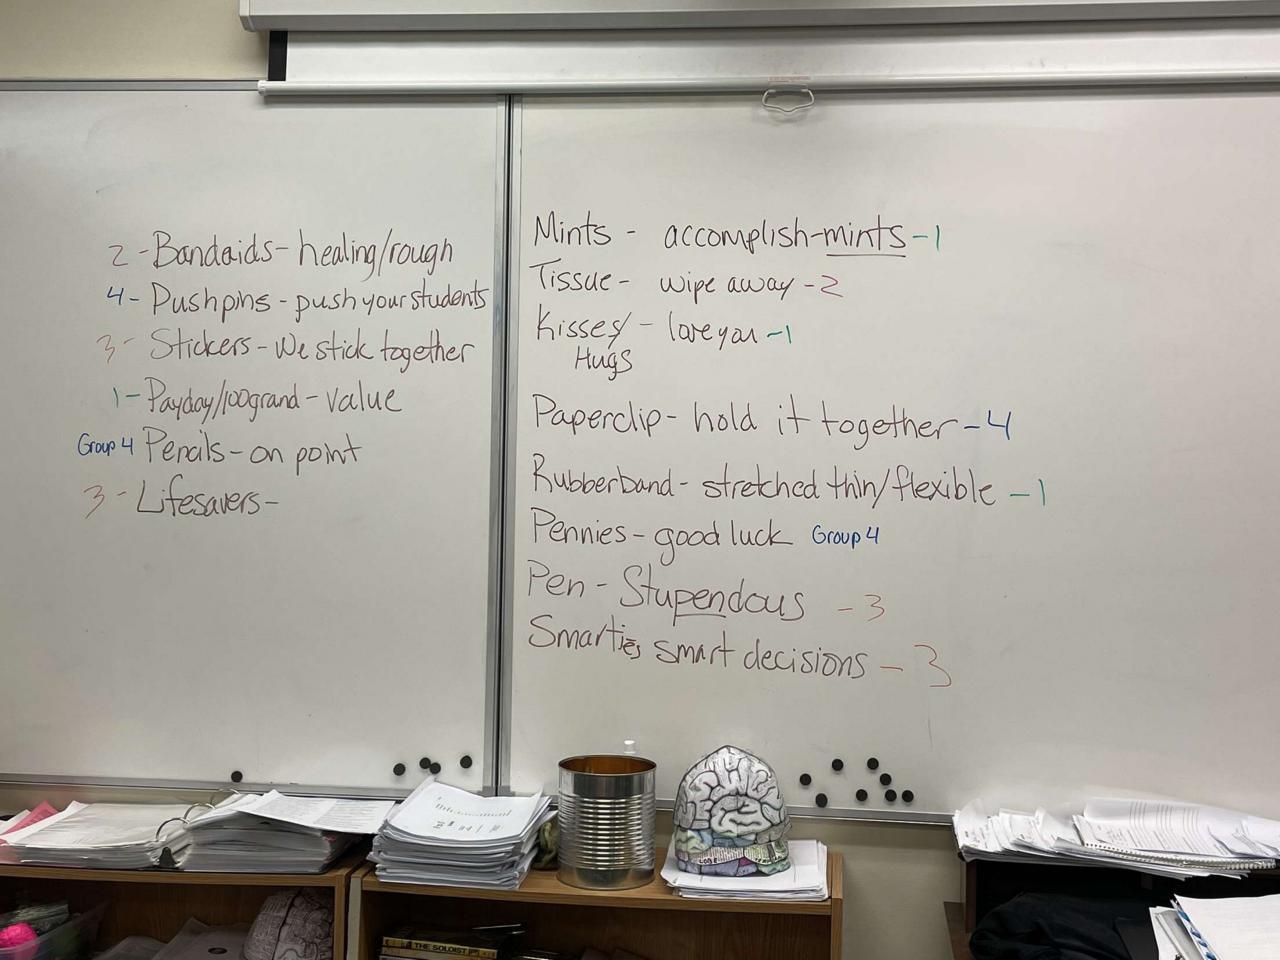 2 - Bandaids - healing/rough
4 - Pushpins - push your students
3 - Stickers - We stick together
1 - Payday/100grand - value
Group 4 Pencils - on point
3 - Lifesavers -
Mints - accomplish-mints - 1
Tissue - wipe away - 2
Kisses/ - love you - 1
Hugs
Paperclip - hold it together - 4
Rubberband - stretched thin/flexible - 1
Pennies - good luck Group 4
Pen - Stupendous - 3
Smarties smart decisions - 3
THE SOLOIST